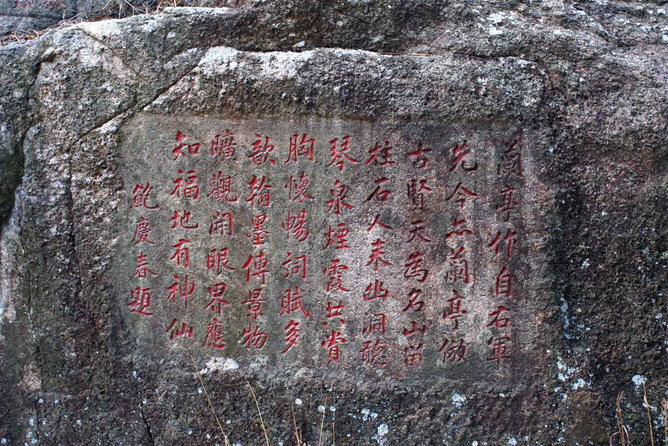 蘭亭作自右軍
先今亦蘭亭倣
古賢天為名山留
柱石人来幽澗聽
琴泉煙霞共賞
胸懷暢詞賦多
歌翰墨傳景物
曠觀開眼界應
知福地有神仙
鮑慶春題